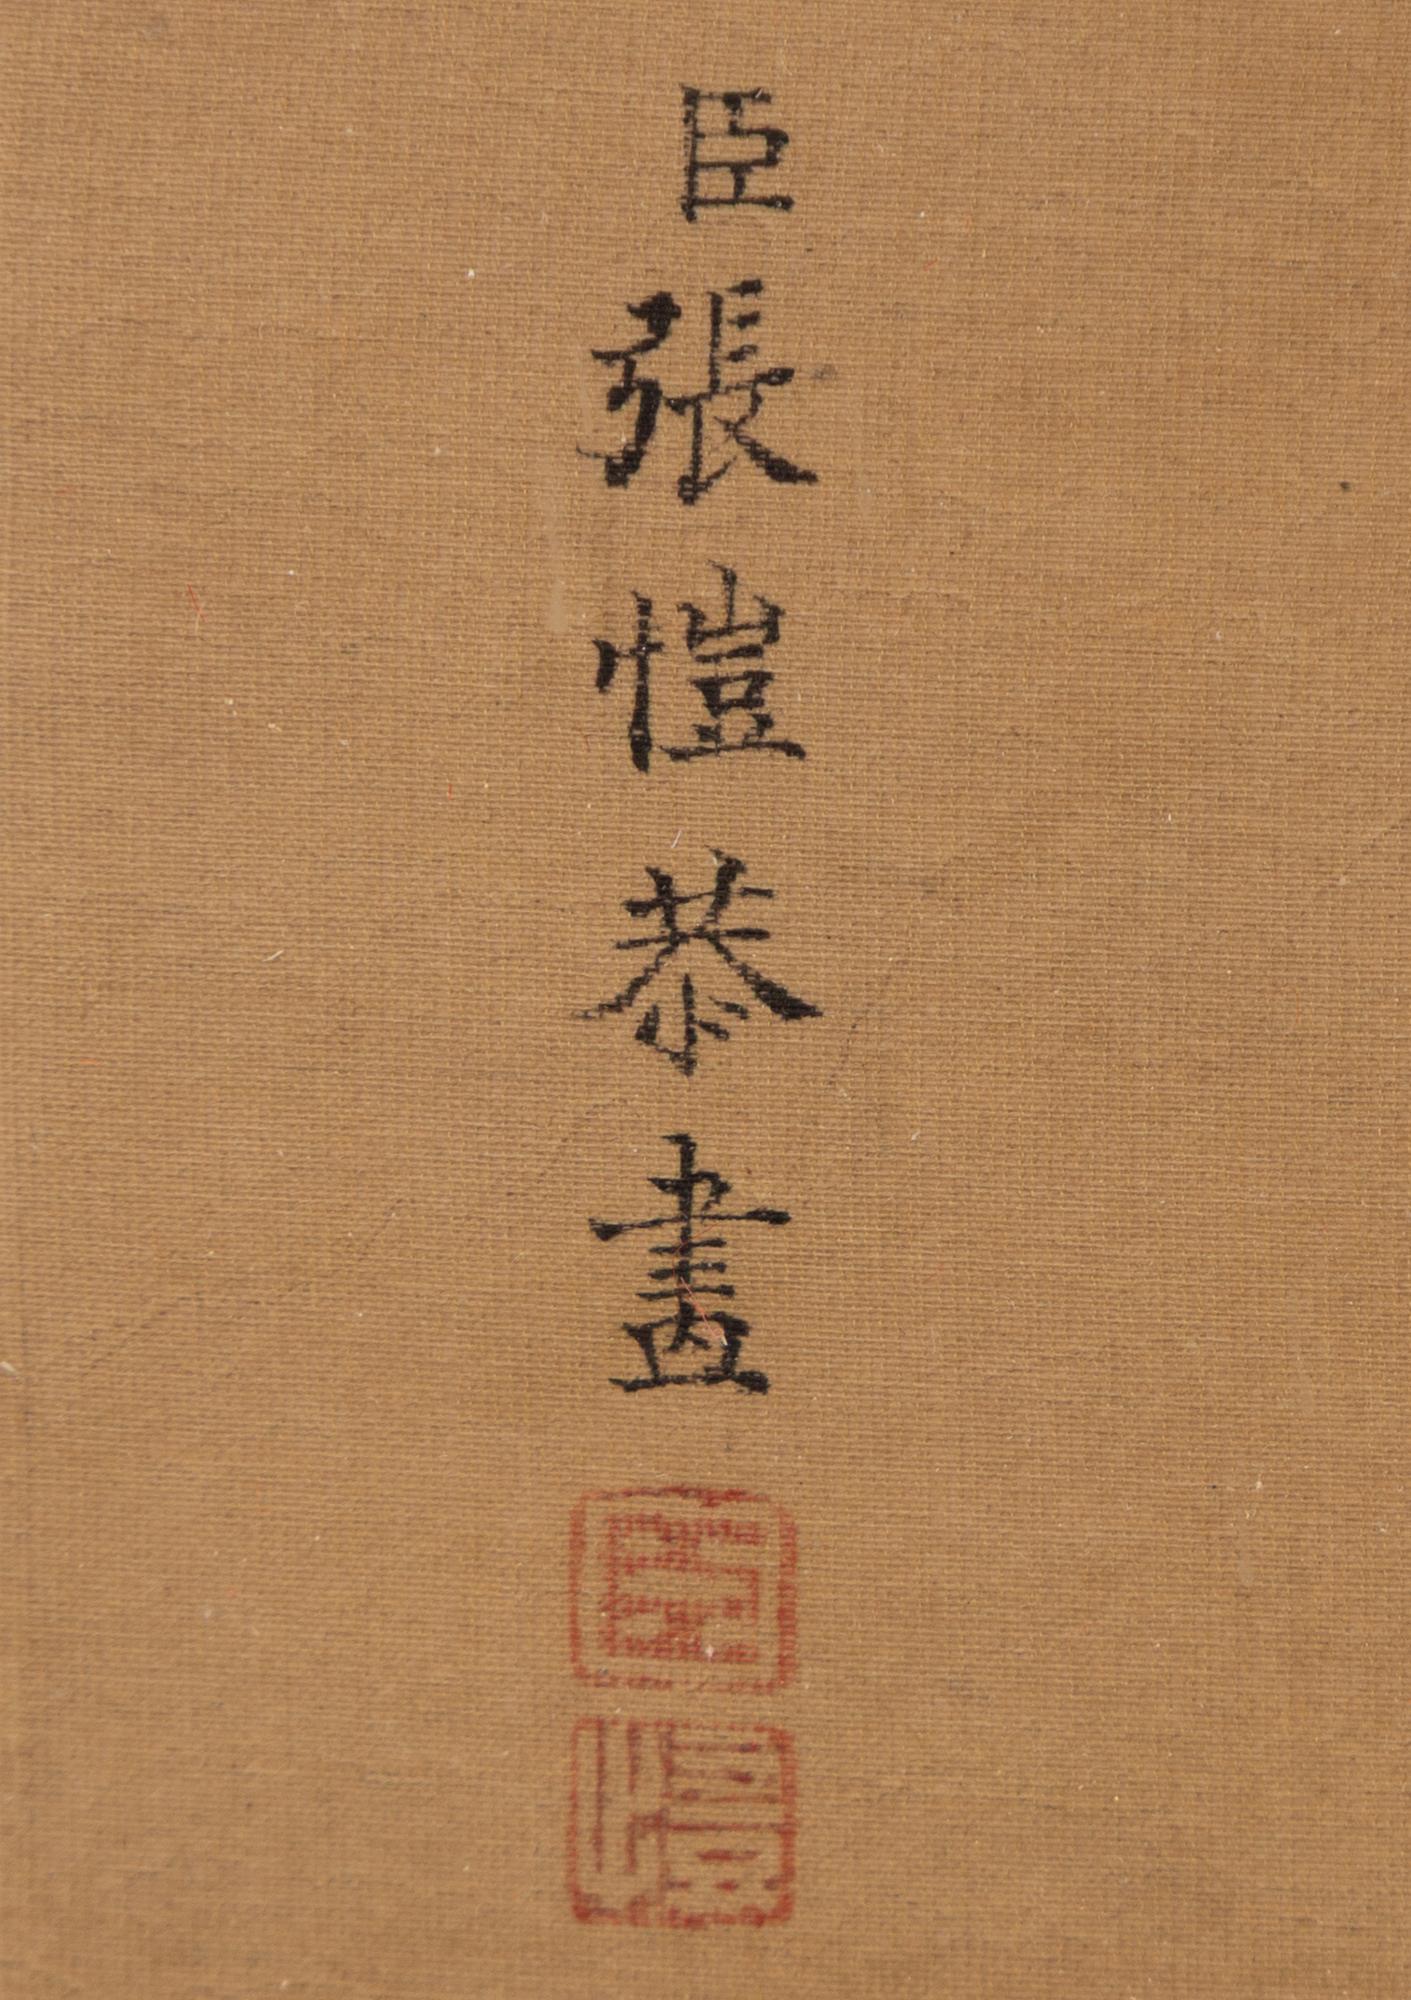 臣張愷恭畫
臣
愷